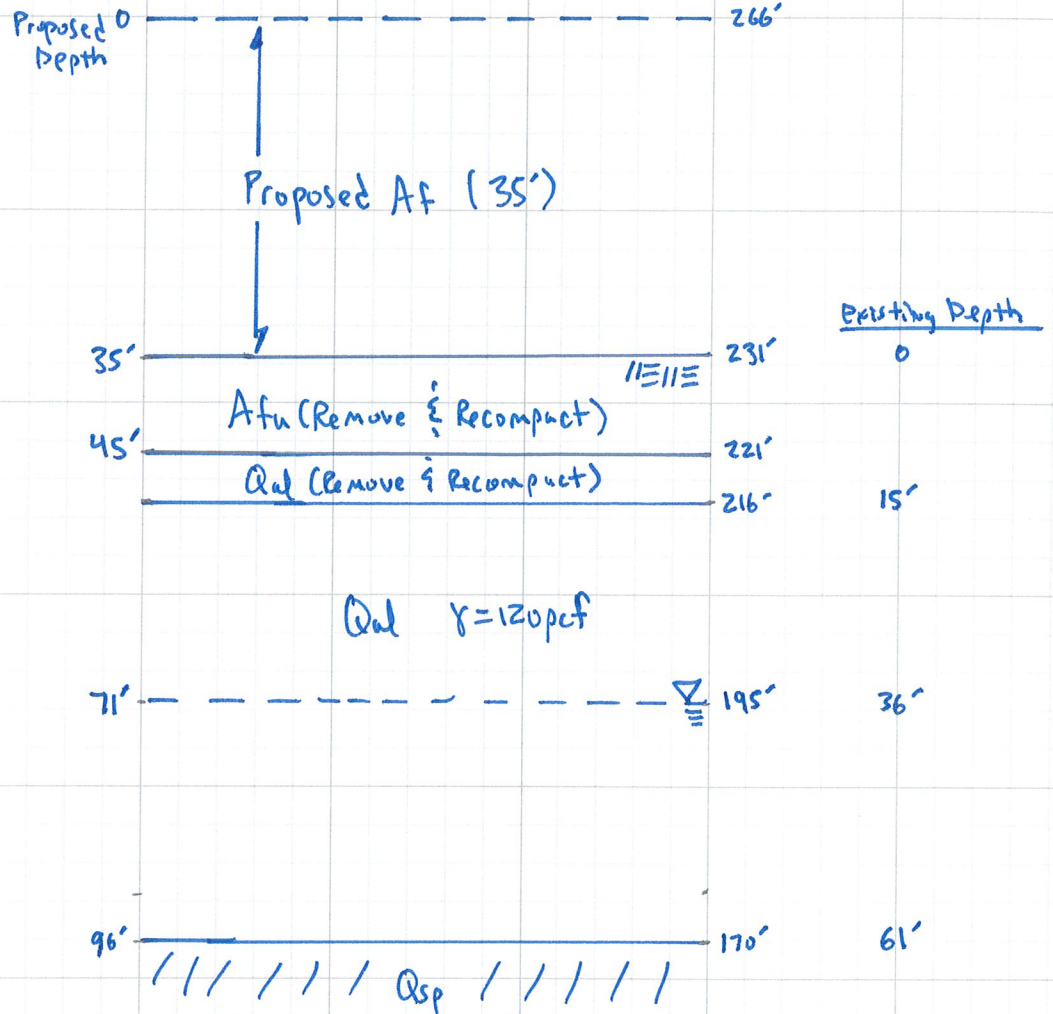 Proposed 0 266'
Depth
Proposed Af (35')
Existing Depth
35' 231' 0
Afu (Remove & Recompact)
45' 221'
Qal (Remove & Recompact)
216' 15'
Qal γ=120pcf
71' 195' 36'
96' 170' 61'
Qsp